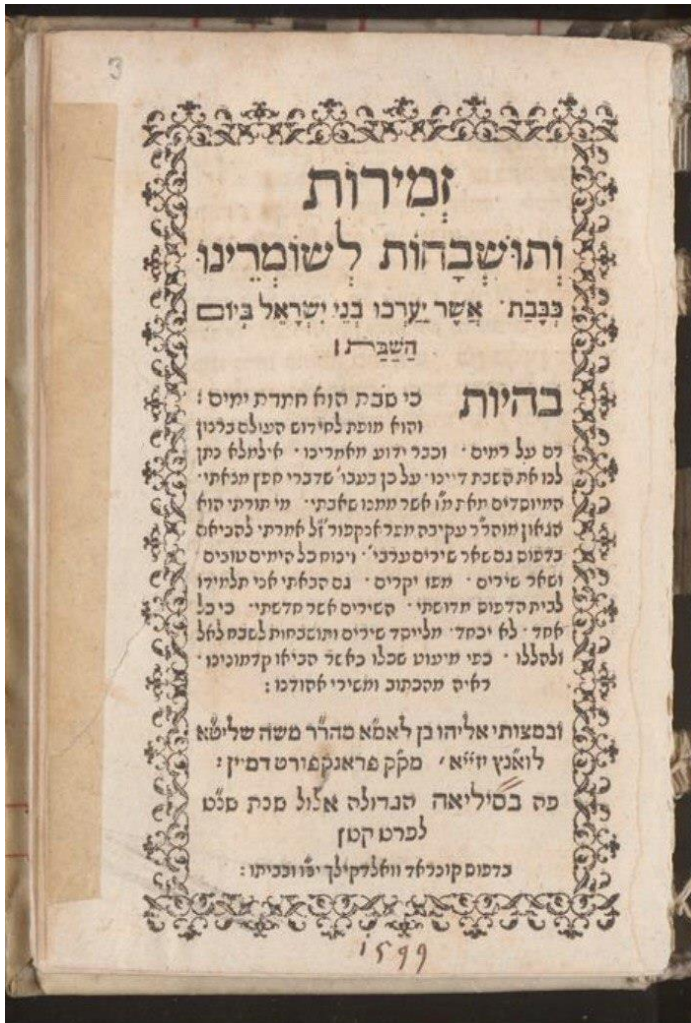 3
זְמִירוֹת
וְתוּשְׁבָּהוֹת לְשׁוֹמְרֵינוּ
כְּבָּבַת · אֲשֶׁר יַעַרְכוּ בְּנֵי יִשְׂרָאֵל בְּיוֹם
הַשַּׁבָּת ׀
בהיות כי שבת הוא חמדת ימים :
והוא מופת לחידוש העולם ברצון
רם על רמים · וכבר ידוע מאמרינו · אילמלא נתן
לנו את השבת דיינו · על כן בעבו' שדברי חפץ מצאתי ·
המיוסדים מאת מ"ו אשר ממנו שאבתי · מי תורתי הוא
הגאון מוהר"ר עקיבה מפראנקפור' ז"ל אמרתי להביאם
בדפוס גם שאר שירים ערבי' · ויכוח כל הימים טובים
ושאר שירים · מפז יקרים · גם הבאתי אני תלמידו
לבית הדפוס מדושתי · השירים אשר חדשתי · כי כל
אחד · לא יכחד · מלייסד שירים ותושבחות לשבח לאל
ולהללו · כפי מיעוט שכלו כאשר הביאו קדמונינו ·
ראיה מהכתוב ומשירי אהודנו :
ובמצותי אליהו בן לאמ"א מהר"ר משה שליט"א
לואנץ יזי"א, מק"ק פראנקפורט דמיין :
פה בסיליאה הגדולה אלול שנת שנ"ט
לפרט קטן
בדפוס קונראד וואלדקילך יפ"ו ובביתו :
1599